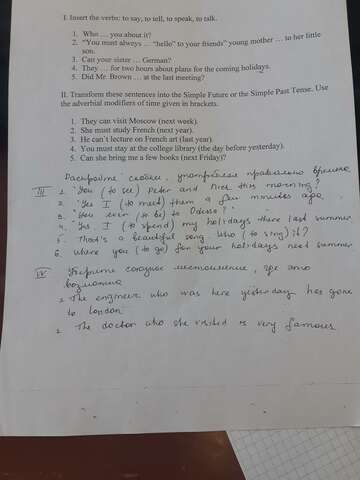 I. Insert the verbs: to say, to tell, to speak, to talk.
1. Who … you about it?
2. "You must always … "hello" to your friends" young mother … to her little
son.
3. Can your sister … German?
4. They … for two hours about plans for the coming holidays.
5. Did Mr. Brown … at the last meeting?
II. Transform these sentences into the Simple Future or the Simple Past Tense. Use
the adverbial modifiers of time given in brackets.
1. They can visit Moscow (next week).
2. She must study French (next year).
3. He can't lecture on French art (last year).
4. You must stay at the college library (the day before yesterday).
5. Can she bring me a few books (next Friday)?
Раскройте скобки, употребляя правильно времена
III 1. "You (to see) Peter and this morning?
2. "Yes I (to meet) them a few minutes ago.
3. "You ever (to be) to Odessa?"
4. "Yes, I (to spend) my holidays there last summer
5. That's a beautiful song Who (to sing) it?
6. Where you (to go) for your holidays next summer
IV Уберите союзное местоимение, где это
возможно
1. The engineer who was here yesterday has gone
to London
2. The doctor who she visited is very famous